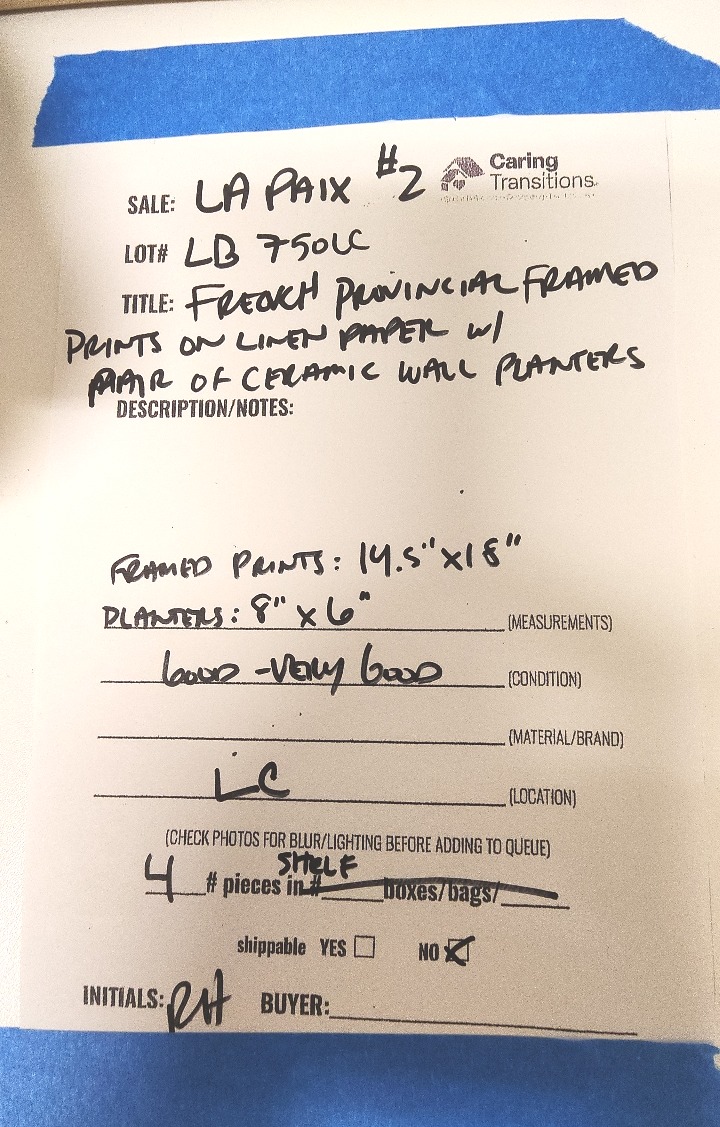 SALE: LA PAIX #2 Caring
Transitions
LOT# LB 750LC
TITLE: FRENCH PROVINCIAL FRAMED
PRINTS ON LINEN PAPER W/
PAIR OF CERAMIC WALL PLANTERS
DESCRIPTION/NOTES:
FRAMED PRINTS: 14.5" X 18"
PLANTERS: 8" X 6" (MEASUREMENTS)
GOOD - VERY GOOD (CONDITION)
(MATERIAL/BRAND)
LC (LOCATION)
(CHECK PHOTOS FOR BLUR/LIGHTING BEFORE ADDING TO QUEUE)
SHELF
4 # pieces in # boxes/bags/
shippable YES NO
INITIALS: RH BUYER: